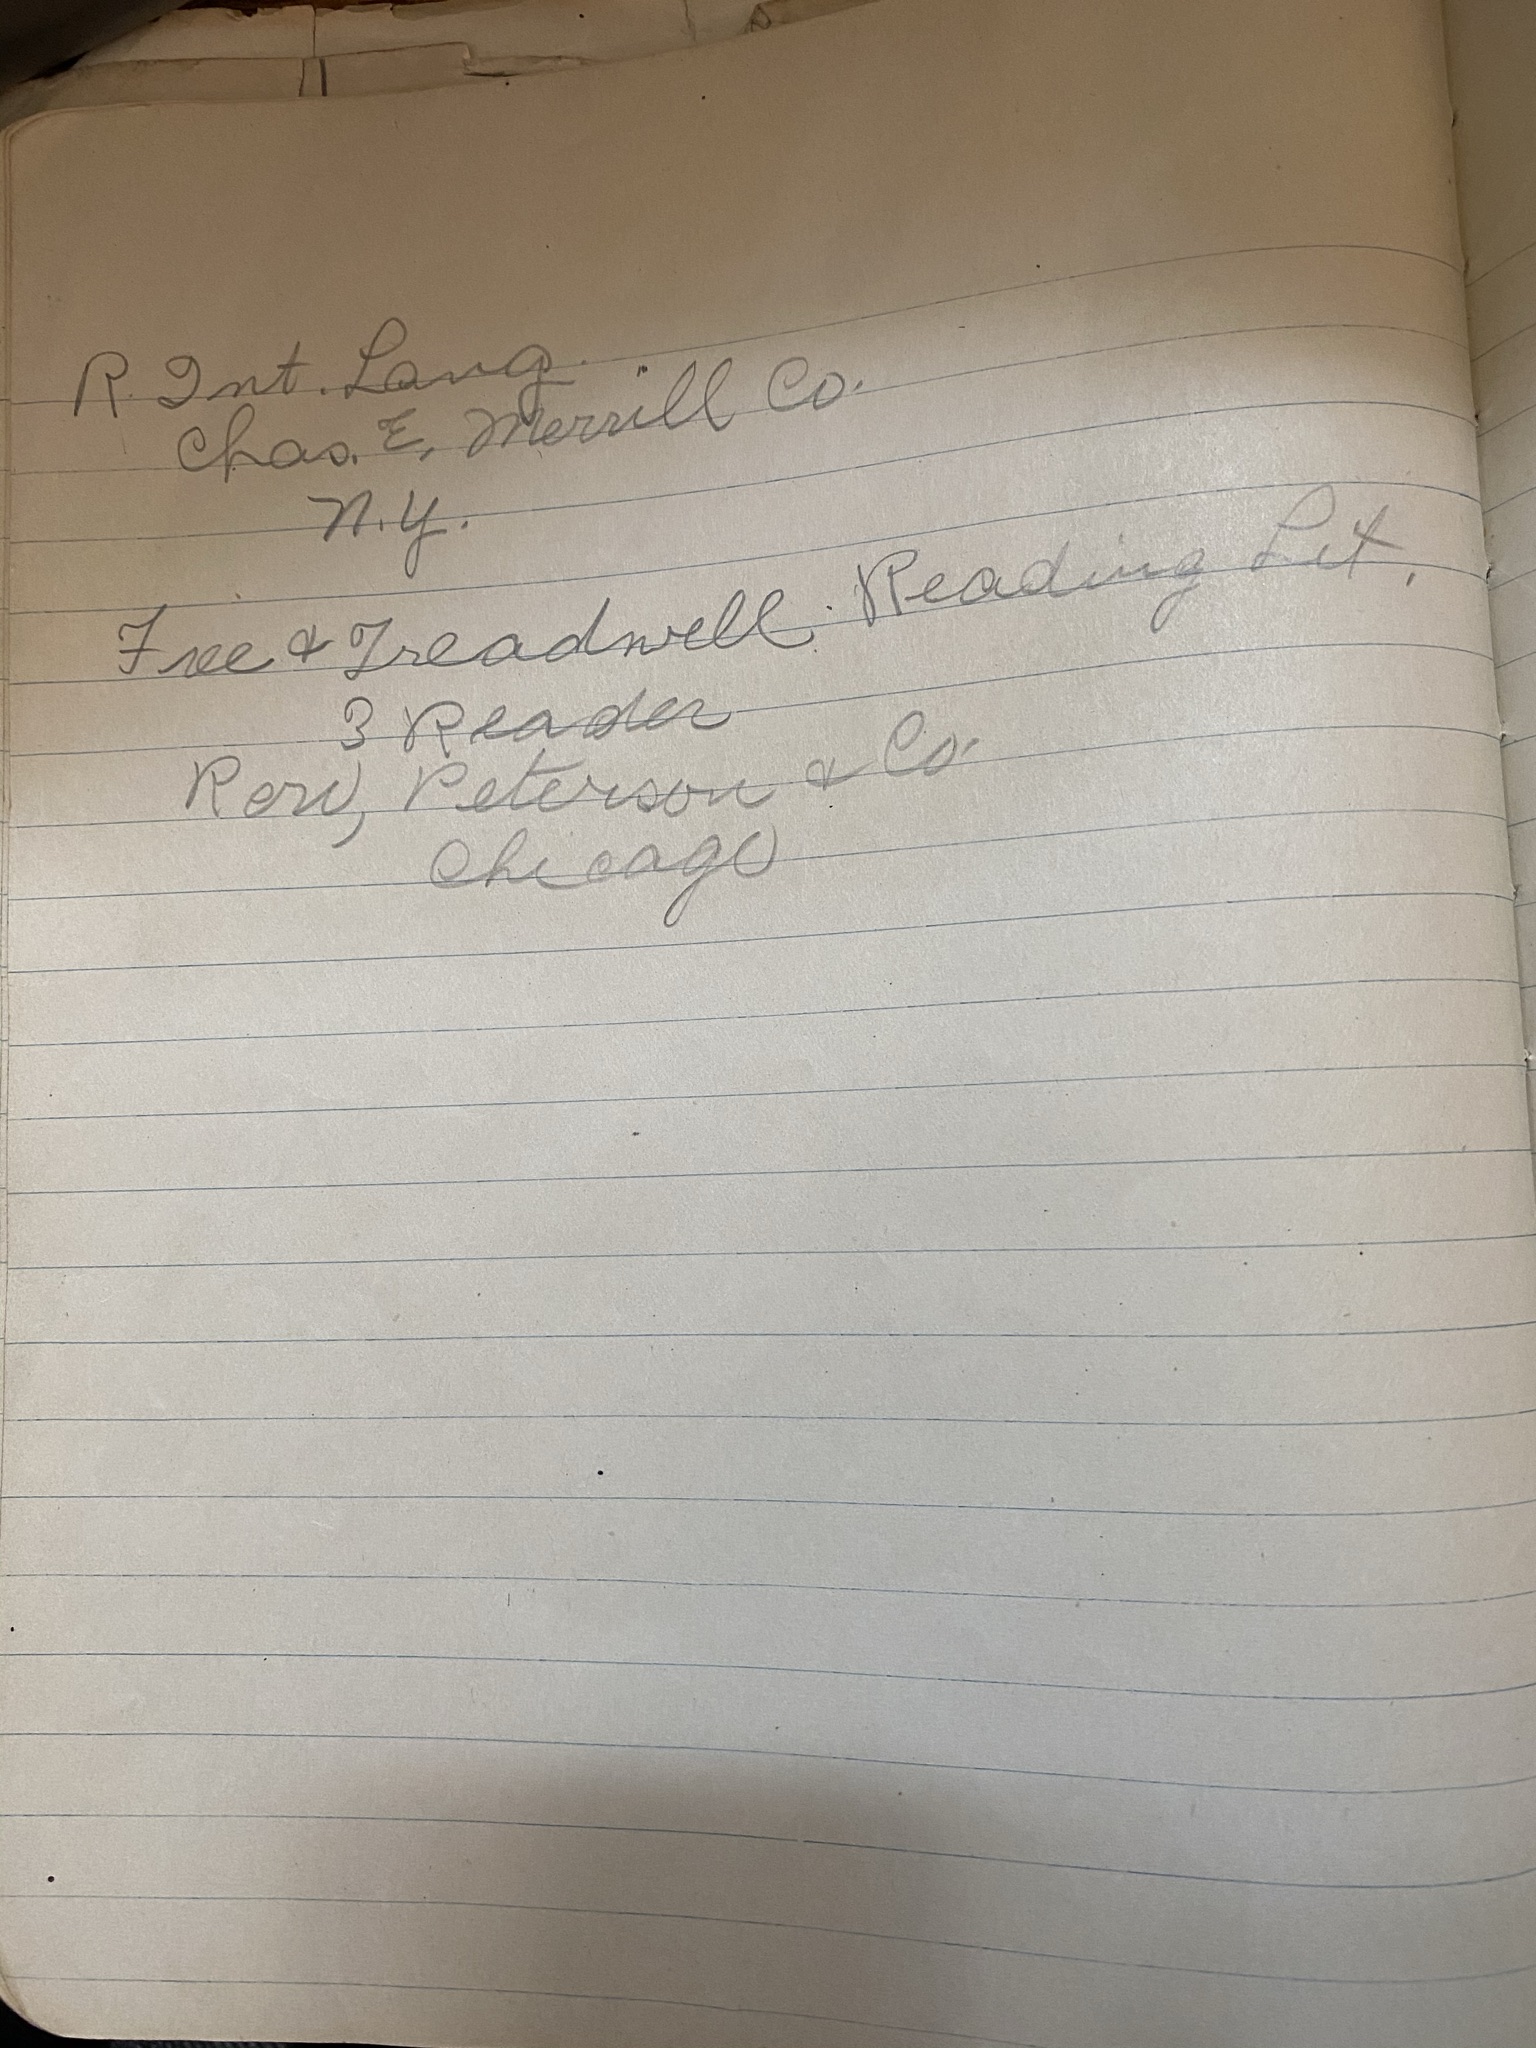 R. Int. Lang.
Chas. E. Merrill Co.
N.Y.
Free & Treadwell. Reading Lit.
3 Reader
Row, Peterson & Co.
Chicago